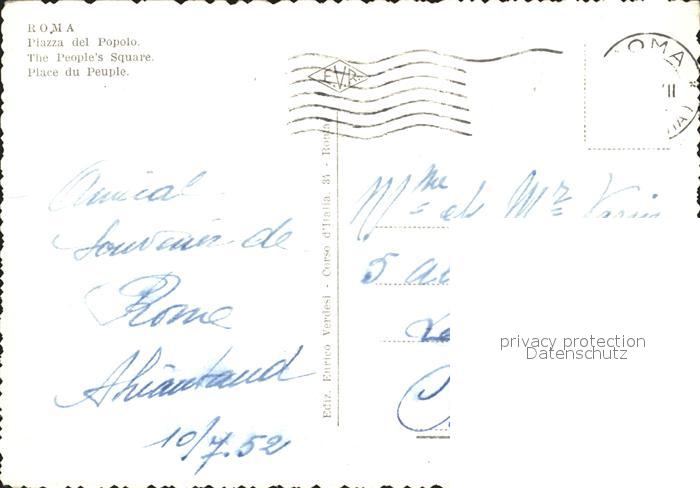 ROMA
Piazza del Popolo.
The People's Square.
Place du Peuple.
E.V.R.
ROMA
Ediz. Enrico Verdesi - Corso d'Italia, 34 - Roma
Amical
souvenir de
Rome
10/7.52
Mme et Mr
5
privacy protection
Datenschutz